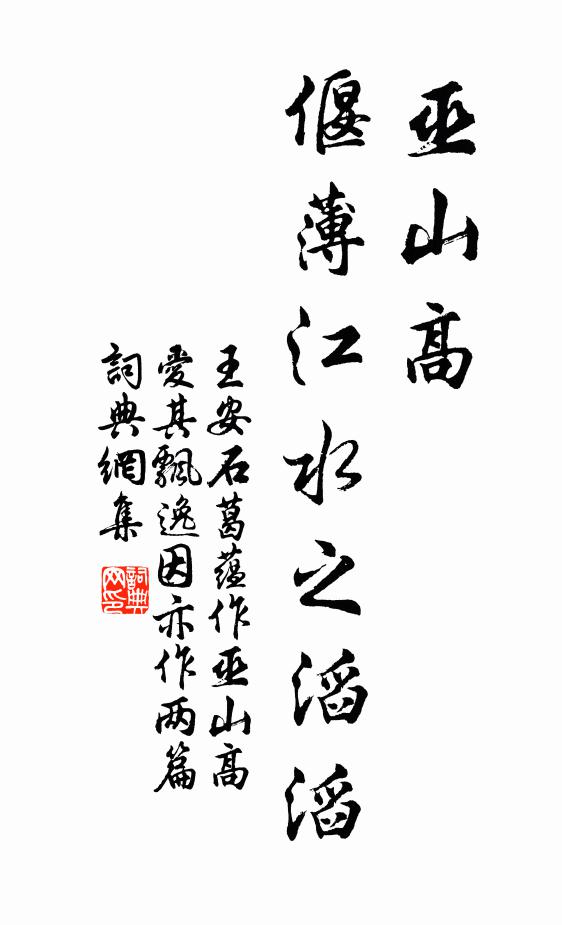 巫山高
偃薄江水之滔滔
王安石葛蕴作巫山高
愛其飄逸因亦作两篇
詞典網集
詞典
网印